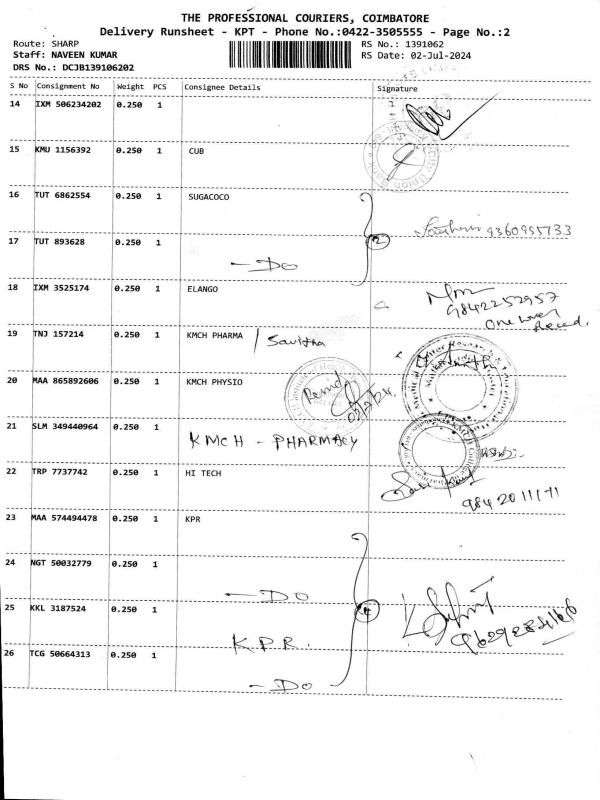 THE PROFESSIONAL COURIERS, COIMBATORE
Delivery Runsheet - KPT - Phone No.:0422-3505555 - Page No.:2
Route: SHARP
Staff: NAVEEN KUMAR
DRS No.: DCJB139106202
RS No.: 1391062
RS Date: 02-Jul-2024
S No Consignment No Weight PCS Consignee Details Signature
14 IXM 506234202 0.250 1
15 KMU 1156392 0.250 1 CUB
16 TUT 6862554 0.250 1 SUGACOCO
2 9360995733
17 TUT 893628 0.250 1
- Do
18 IXM 3525174 0.250 1 ELANGO
9842252957
19 TNJ 157214 0.250 1 KMCH PHARMA / Savitha
20 MAA 865892606 0.250 1 KMCH PHYSIO
21 SLM 349440964 0.250 1
KMCH - PHARMACY
22 TRP 7737742 0.250 1 HI TECH
984 20 11171
23 MAA 574494478 0.250 1 KPR
24 NGT 50032779 0.250 1
- Do
25 KKL 3187524 0.250 1 4
KPR.
26 TCG 50664313 0.250 1
- Do